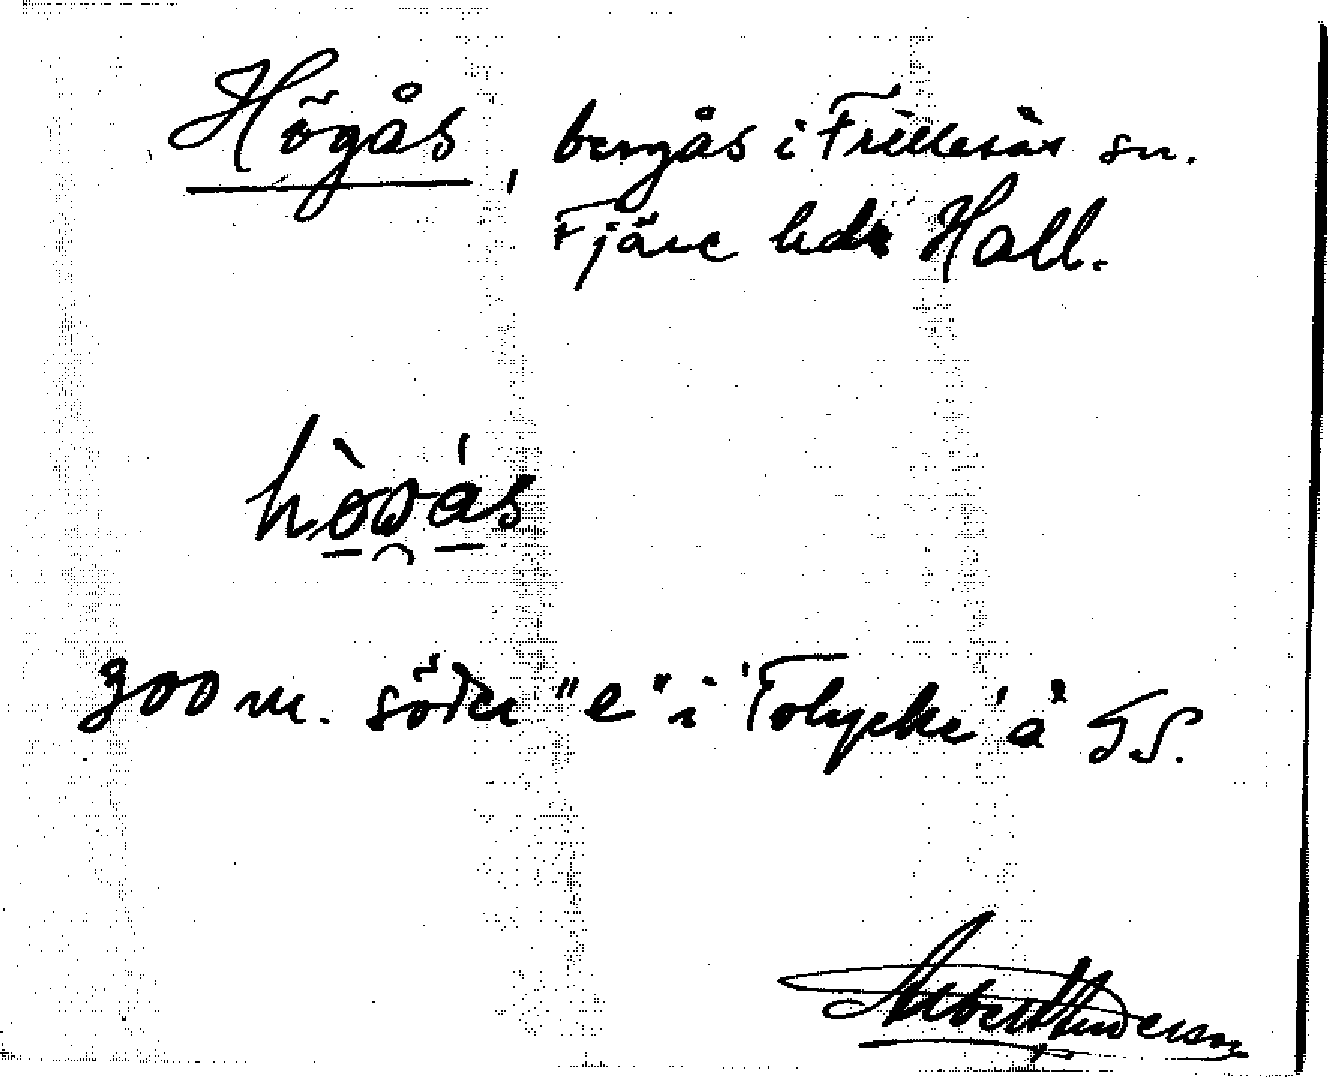 Högås, bergås i Frillesås sn.
Fjäre hd Hall.
hòωás
300 m. söder "e" i 'Tolycke' å GS.
Albert Anderson